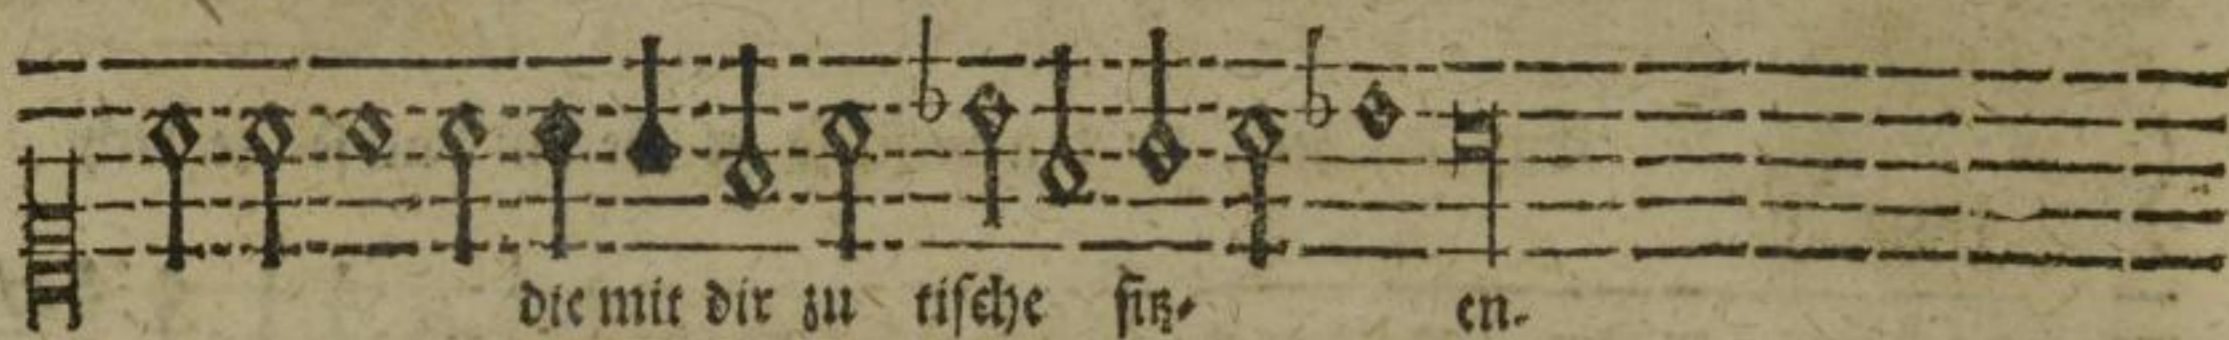 die mit dir zu tische sitz- en.